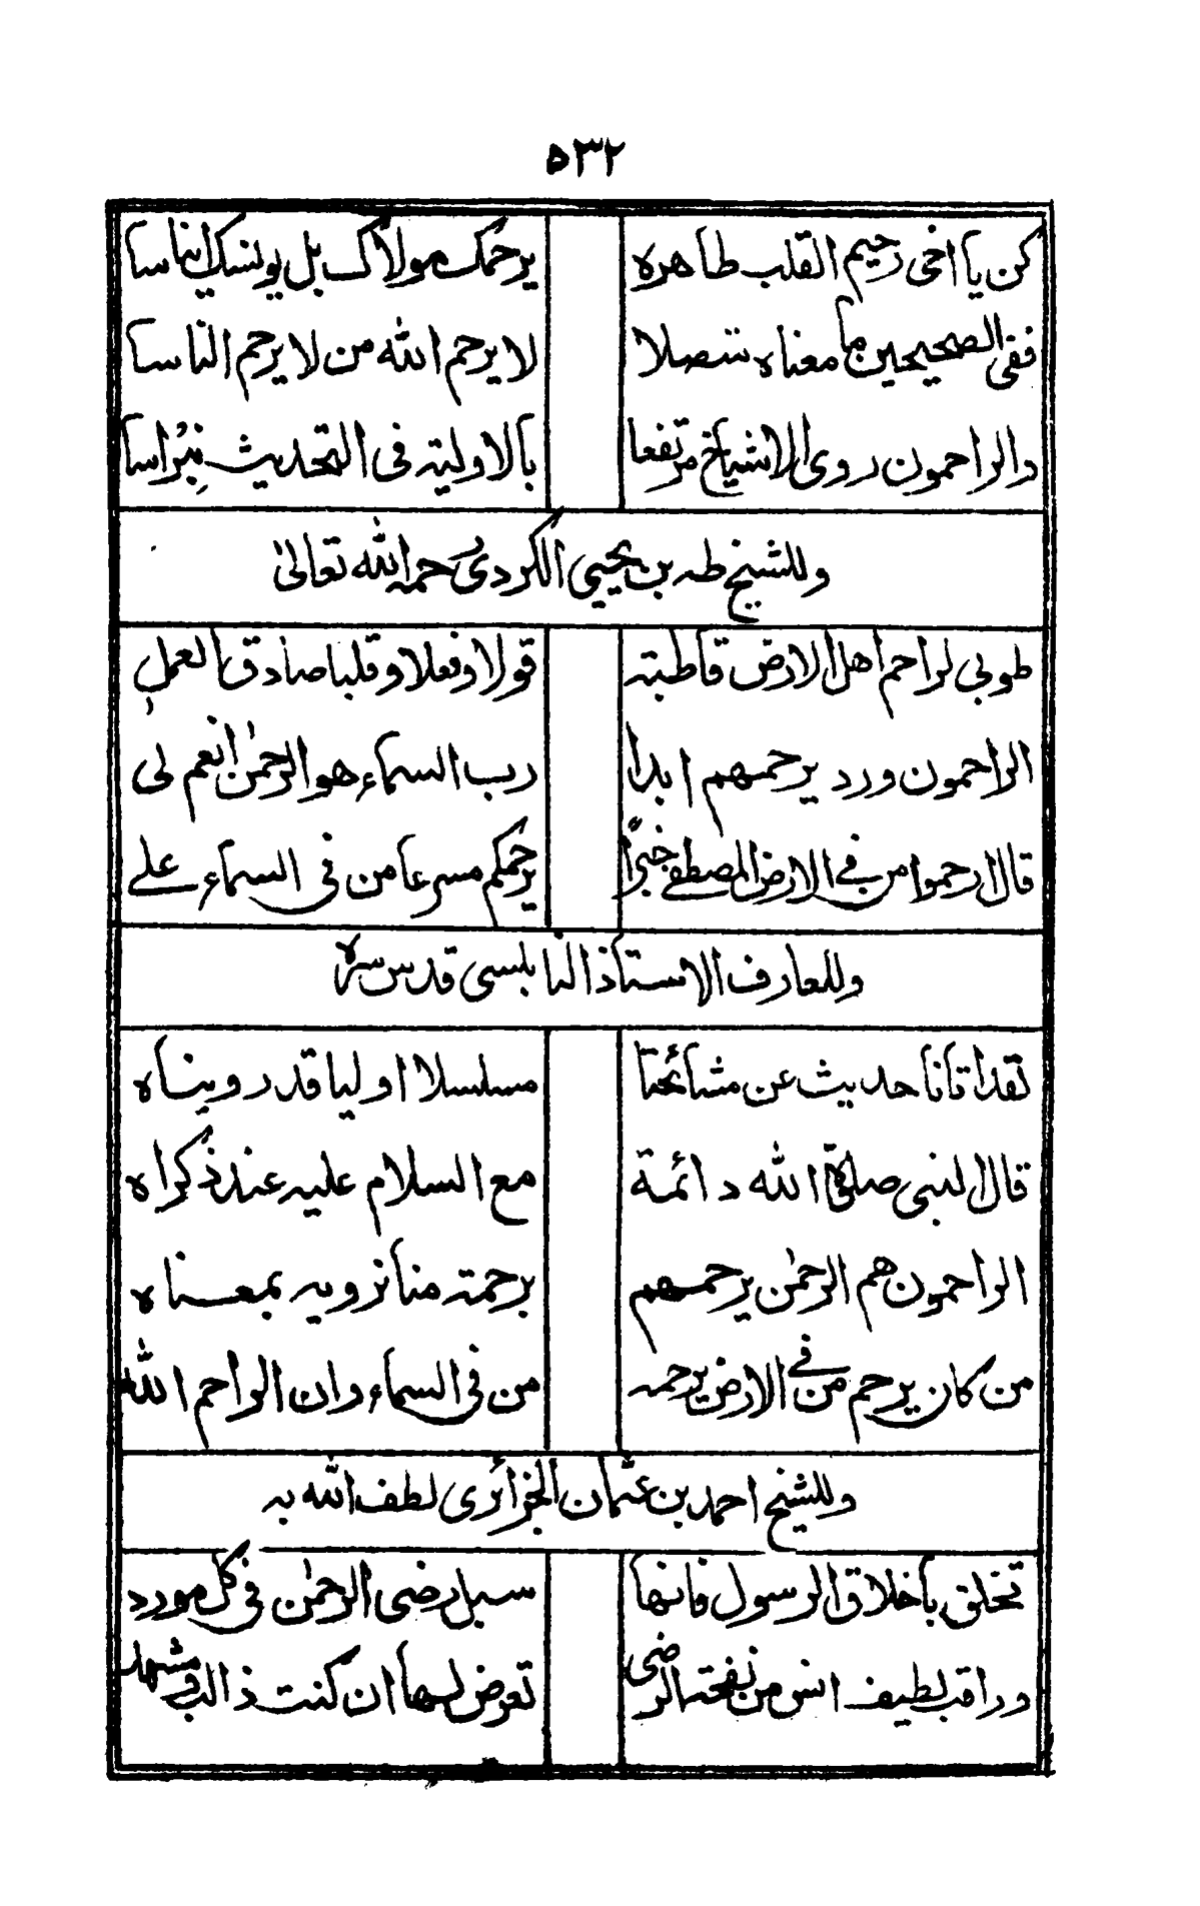 ۵۳۲
كن يا اخى رحيم القلب طاهره يرحمك مولاك بل يوليك ايناسا
ففى الصحيحين ما معناه متصلا لا يرحم الله من لا يرحم الناسا
والراحمون روى الاشياخ مرتفعا بالاولية فى التحديث نبراسا
وللشيخ طه بن يحيى الكردى رحمه الله تعالى
طوبى لراحم اهل الارض قاطبة قولا وفعلا وقلبا صادق العمل
الراحمون ورد يرحمهم ابدا رب السماء هو الرحمن انعم لى
قال ارحموا من فى الارض المصطفى خبرًا يرحمكم مسرعا من فى السماء على
وللعارف الاستاذ النابلسى قدس سره
لقد اتانا حديث عن مشائخنا مسلسلا اوليا قد رويناه
قال النبى صلاة الله دائمة مع السلام عليه عند ذكراه
الراحمون هم الرحمن يرحمهم برحمة منا نرويه بمعناه
من كان يرحم من فى الارض يرحمه من فى السماء وان الراحم الله
وللشيخ احمد بن عثمان الجزائرى لطف الله به
تخلق باخلاق الرسول فانها سبيل رضى الرحمن فى كل مورد
وراقب لطيف انس من نفحة الرضى تعرض لها ان كنت ذا لب مشهد